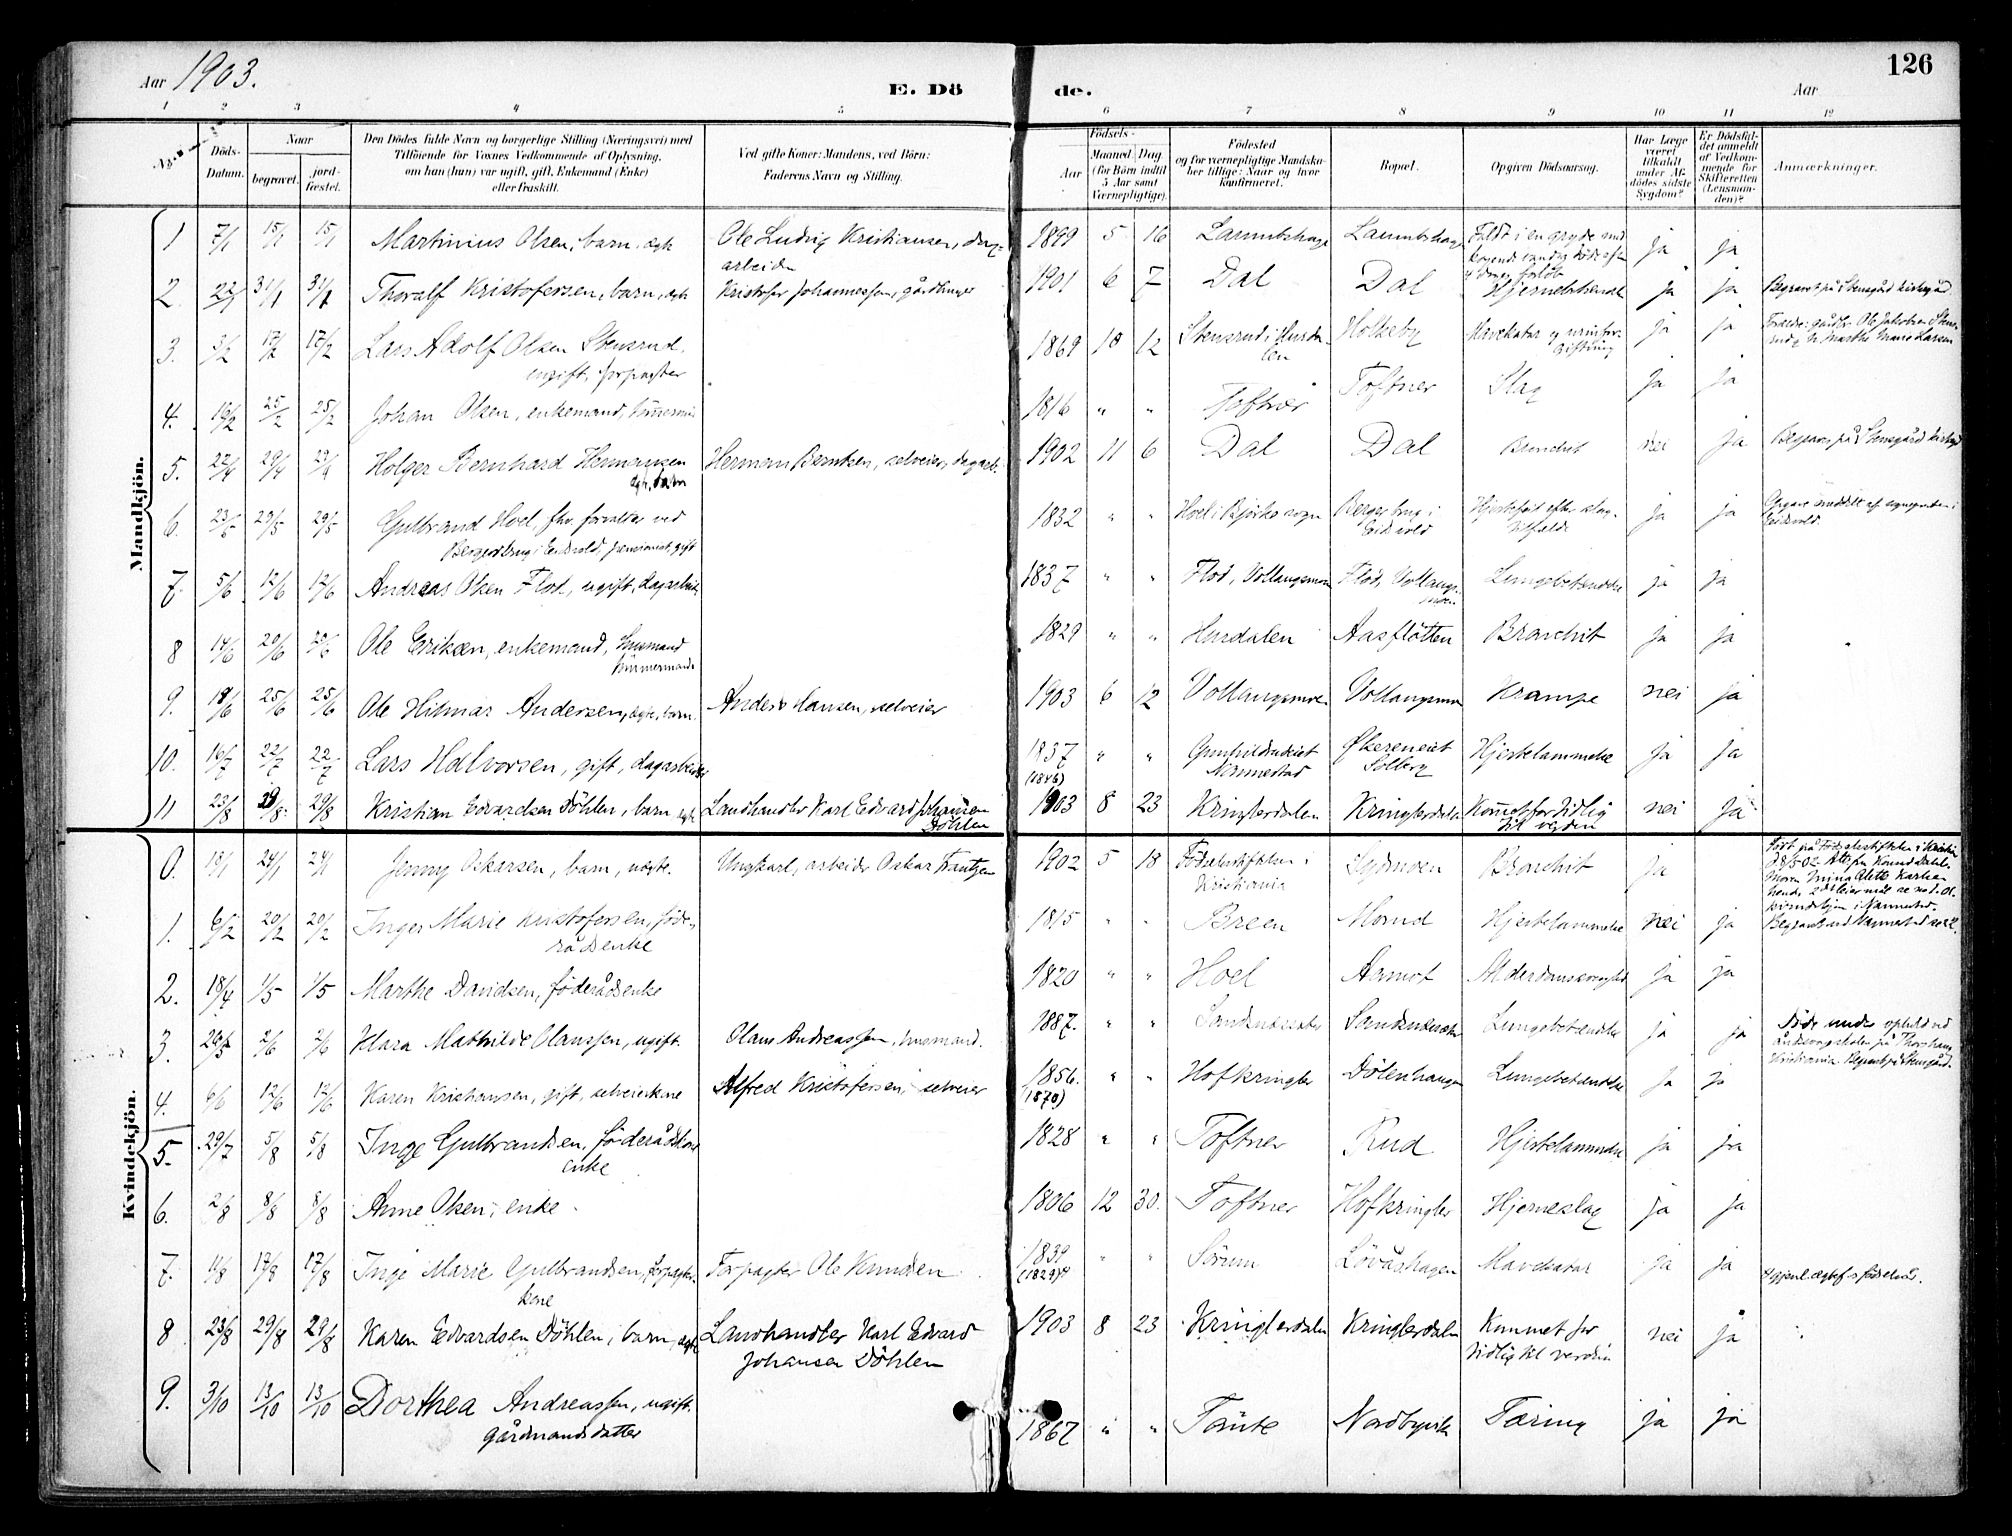 126
Aar 1903.
E. Döde.
Aar
1 2 3 4 5 6 7 8 9 10 11 12
No.
Döds-Datum.
Naar
begravet.
jord-fæstet.
Den Dödes fulde Navn og borgerlige Stilling (Næringsvei) med
Tilföiende for Voxnes Vedkommende af Oplysning,
om han (hun) var ugift, gift, Enkemand (Enke)
eller fraskilt.
Ved gifte Koner: Mandens, ved Börn:
Faderens Navn og Stilling.
Födsels-
Aar
Maaned Dag
(for Börn indtil
5 Aar samt
Værnepligtige).
Födested
og for værnepligtige Mandska-
ber tillige: Naar og hvor
konfirmeret.
Bopæl.
Opgiven Dödsaarsag.
Har Læge
været
tilkaldt
under Af-
dödes sidste
Sygdom?
Er Dödsfal-
det anmeldt
af Vedkom-
mende for
Skifteretten
(Lensman-
den)?
Anmærkninger.
Mandkjön.
1 7/1 15/1 15/1 Martinius Olsen, barn, ægte Ole Ludvig Kristiansen, dag-
arbeider 1899 5 16 Faldt i en gryde med
kogende vand ja ja
2 22/1 31/1 31/1 Thoralf Kristofersen, barn, ægte Kristofer Johannessen, gårdbruger 1901 6 7 Dal Dal ja ja Begravet på Stensgård kirkegård
3. 3/2 17/2 17/2 Lars Adolf Olsen Stensrud,
ugift, forpagter 1869 10 12 Stensrud i Hurda-
len Holkeby Mavekatar og urinfor-
giftning ja ja Forældre: gårdbr. Ole Jakobsen Stens-
rud og h. Marthe Marie Larsen
4. 16/2 25/2 25/2 Johan Olsen, enkemand, 1816 " " Toftner Toftner Slag ja ja
5. 22/4 29/4 29/4 Holger Bernhard Hermansen
ægte, barn Herman Berntsen, selveier, dagarb. 1902 11 6 Dal Dal Bronchit nei ja Begravet på Stensgård kirkegård
6 23/5 29/5 29/5 Gulbrand Hoel, fhv. forvalter ved
i Eidsvold, pensionist, gift 1832 " " Hoel i Bjørke sogn i
Eidsvold Hjertefeil efter slag-
tilfælde ja ja i
Eidsvold.
7. 5/6 12/6 12/6 Andreas Olsen Flod, ugift, dagarbeider 1837 " " Flod, Vollaugsmoen Flod, Vollaugs-
moen Lungebetændelse ja ja
8 14/6 20/6 20/6 Ole Eriksen, enkemand, husmand
tømmermand 1829 " " Hurdalen Aasflötten Bronchit ja ja
9. 18/6 25/6 25/6 Ole Hilmar Andersen, ægte, barn. Anders Hansen, selveier 1903 6 12 Vollaugsmoen Vollaugsmoen Krampe nei ja
10. 16/7 22/7 22/7 Lars Halvorsen, gift, dagarbeider 1837
(1846) " "
Nannestad Økereneiet
Solberg Hjertelammelse ja ja
11 23/8 29/8 29/8 Kristian Edvardsen Döhlen, barn, ægte Landhandler Karl Edvard Johansen
Döhlen 1903 8 23 Kringlerdalen Kringlerdalen Kommet for tidlig
til verden nei ja
Kvindekjön.
0. 18/1 24/1 24/1 Jenny Oskarsen, barn, uægte. Ungkarl, arbeider Oskar Frantzen 1902 5 18 Födselsstiftelsen i
Kristiania Sydmoen Bronchit ja Født på Fødselsstiftelsen i Kristia
Moren Mina Olette Karlsen
1. 6/2 20/2 20/2 Inger Marie Kristofersen, føde-
rådsenke 1815 " " Breen Hjertelammelse nei ja
2. 18/4 1/5 1/5 Marthe Davidsen, föderådsenke 1820 " " Hoel Aamot Alderdomssvaghed ja ja
3. 26/5 2/6 2/6 Klara Mathilde Olaussen, ugift. Olaus Andreassen, husmand. 1887. " " Lungebetændelse ja ja Døde under ophold ved
på Thorshaug
Kristiania. Begravet på Stensgård.
4. 6/6 12/6 12/6 Karen Kristiansen, gift, selveierkone Alfred Kristofersen, selveier 1856.
(1870) " " Hofkringler Dölenhaugen Lungebetændelse ja ja
5. 29/7 5/8 5/8 Inge Gulbrandsen, föderådskone
enke 1828 " " Toftner Rud Hjertelammelse ja ja
6. 2/8 8/8 8/8 Anne Olsen, enke 1806 12 30. Toftner Hofkringler Hjerneslag ja ja
7. 11/8 17/8 17/8 Inge Marie Gulbrandsen, forpagter-
kone Forpagter Ole Knudsen 1839
(1829)? " " Sörum Lövåshagen Mavekatar ja ja
8 23/8 29/8 29/8 Karen Edvardsen Döhlen, barn, ægte Landhandler Karl Edvard
Johansen Döhlen 1903 8 23 Kringlerdalen Kringlerdalen Kommet for
tidlig til verden nei ja
9. 3/10 13/10 13/10 Dorthea Andreassen, ugift.
gårdmandsdatter 1867 " " Tæring ja ja